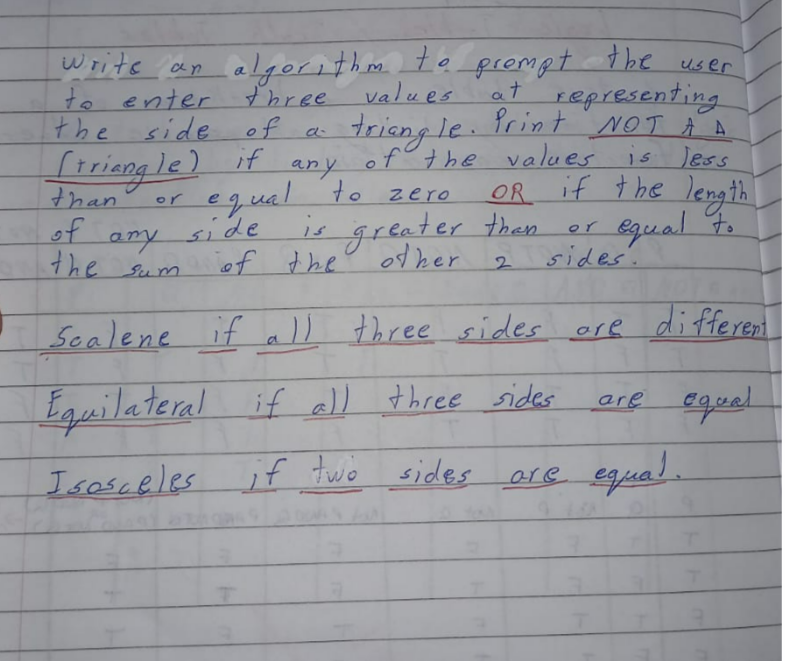 Write an algorithm to prompt the user
to enter three values at representing
the side of a triangle. Print NOT A Δ
(triangle) if any of the values is less
than or equal to zero OR if the length
of any side is greater than or equal to
the sum of the other 2 sides.
Scalene if all three sides are different
Equilateral if all three sides are equal
Isosceles if two sides are equal.